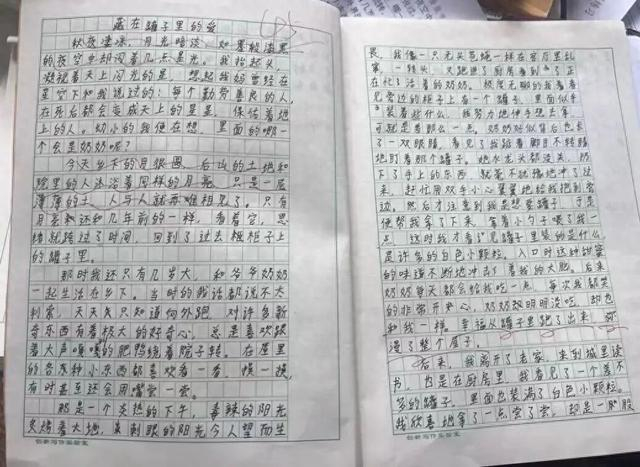 藏在罐子里的爱
秋夜凄凉，月光暗淡，如墨般漆黑
的夜空中却闪着几点星光。我抬起头，
凝视着天上闪光的星，想起我妈曾经在
星空下和我说过的：每个勤劳善良的人，
在死后都会变成天上的星星，保佑着地
上的人。幼小的我便在想，里面的哪一
个会是奶奶呢？
今天乡下的月很圆，后山的土地和
院里的人沐浴着同样的月亮，只是一层
薄薄的土，人与人就再难相见了。只有
月亮和还和几年前的一样，看着它，思
绪就跨过了时间，回到了过去橱柜子上
的罐子里。
那时我还只有几岁大，和爷爷奶奶
一起生活在乡下。当时的我话都说不大
利索，天天只知道向外跑，对许多新
奇东西有着极大的好奇心，总是喜欢跟
着大声嘎嘎的肥鸭绕着院子转。在屋里
的各种小东西都喜欢看一看，摸一摸，
有时甚至还会用嘴尝一尝。
那是一个炎热的下午，毒辣的阳光
炙烤着大地，刺眼的阳光令人望而生
创新写作实验室
畏。我像一只无头苍蝇一样在客厅里乱
窜，一转头，又跑进了厨房看到了正
在忙活着的奶奶。极度无聊的我看着
见旁边的柜子上有一个罐子，里面似乎
装着些什么。我努力地伸手想去拿，
可就是差那么一点。奶奶好似背后也长
了一双眼睛，看见了我踮着脚目不转睛
地盯着那个罐子。她水龙头都没关，放
下了手上的东西，就毫不犹豫地冲了过
来，赶忙用双手小心翼翼地给我抱到旁
边。然后才注意到我是想要罐子，于是
便帮我拿了下来，拿着小勺子喂了我一
点。这时我才看见罐子里装的是什么，
是许多的白色小颗粒。入口时这种甜蜜
的味道不断地冲击着我的大脑。后来
奶奶每天都会给我吃一点，每次我都笑
的非常开心，奶奶明明没吃，却也
和我一样。幸福从罐子里跑了出来，弥
漫了整个屋子。
后来，我离开了老家，来到城里读
书，也是在厨房里，我看见了一个差不
多的罐子，里面也装满了白色小颗粒。
我欣喜地拿了一点尝了尝，却是一股
创新写作实验室